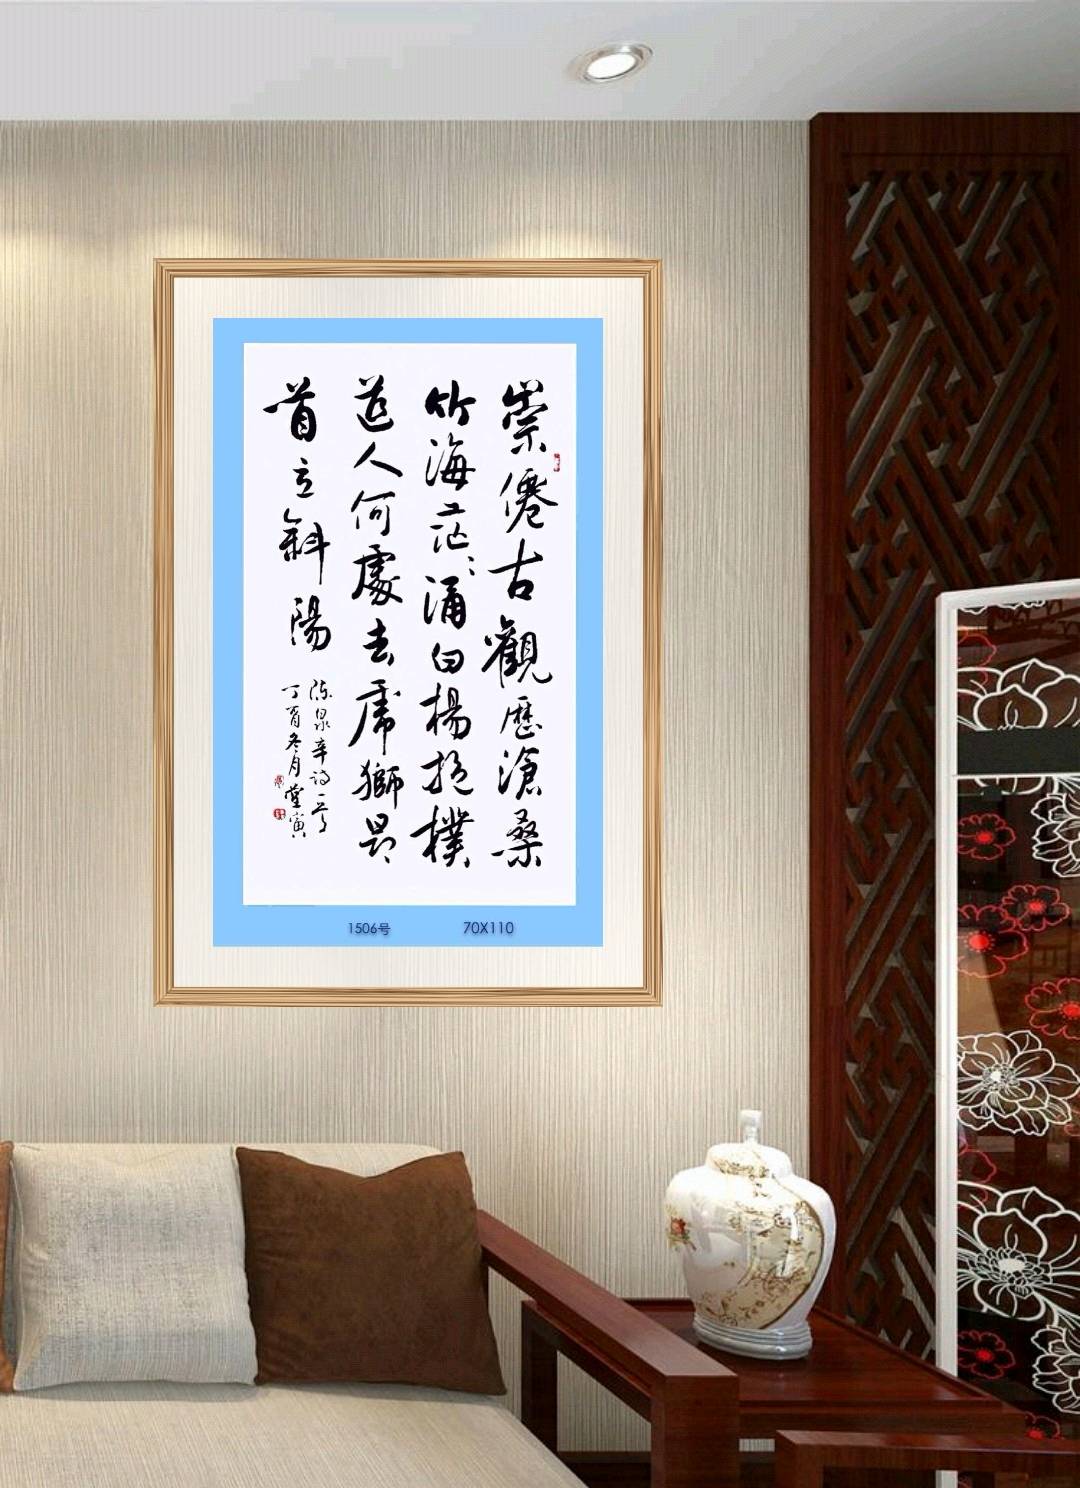 崇僊古觀歷滄桑
竹海茫〻涌白楊抱樸
道人何處去虎獅昂
首立斜陽
陈泉辛诗一首
丁酉冬月堂寅
1506号 70X110